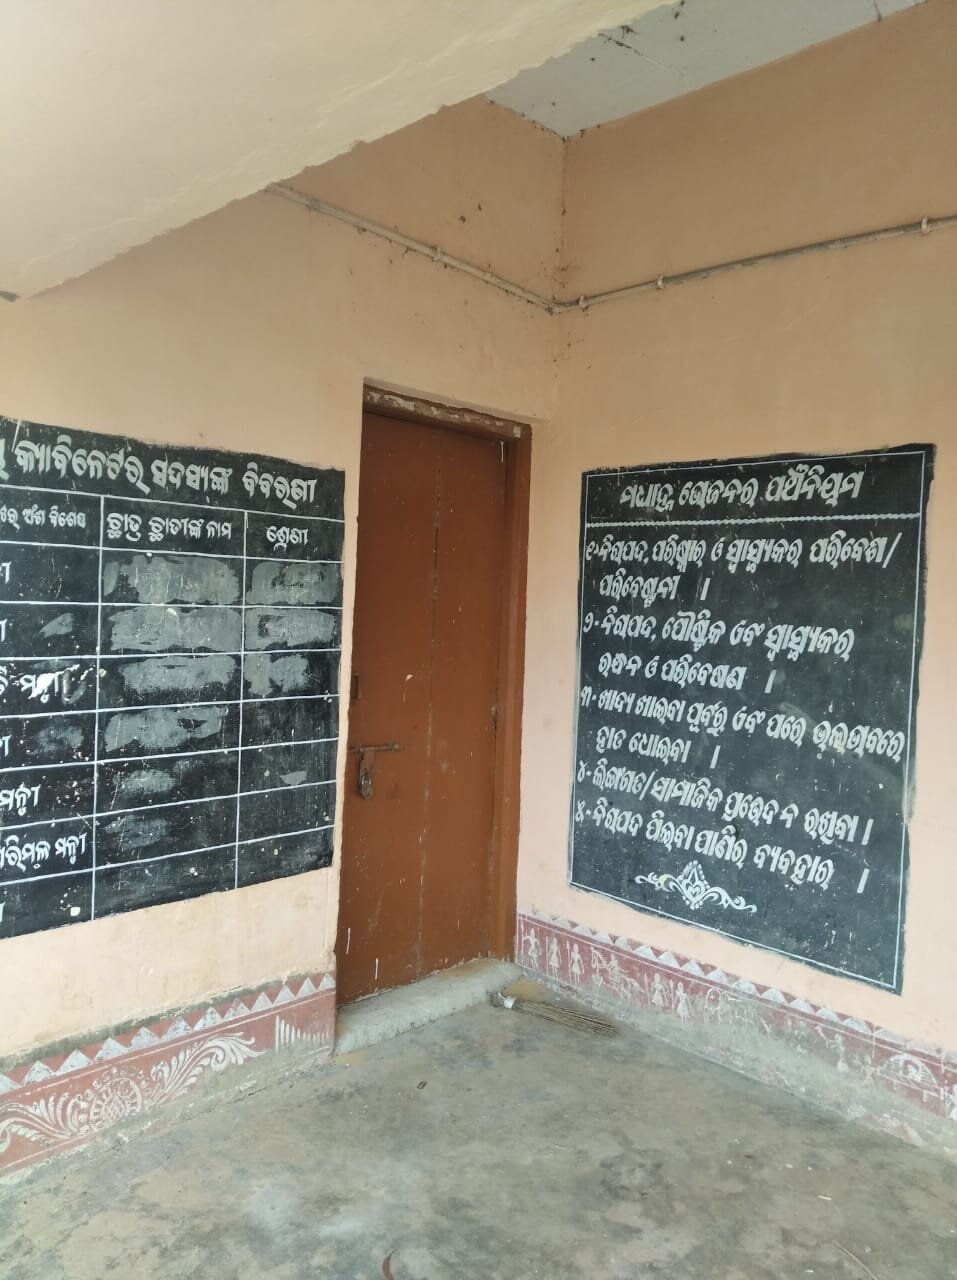 କ୍ୟାବିନେଟର ସଦସ୍ୟଙ୍କ ବିବରଣୀ
ରେ ଅଂଶ ବିଶେଷ ଛାତ୍ର ଛାତ୍ରୀଙ୍କ ନାମ ଶ୍ରେଣୀ
ମନ୍ତ୍ରୀ
ମନ୍ତ୍ରୀ
ପରିମଳ ମନ୍ତ୍ରୀ
ମଧ୍ୟାହ୍ନ ଭୋଜନର ପଞ୍ଚନିୟମ
୧- ନିରାପଦ, ପରିଷ୍କାର ଓ ସ୍ୱାସ୍ଥ୍ୟକର ପରିବେଶ/
ପରିବେଷ୍ଟନୀ ।
୨- ନିରାପଦ, ପୌଷ୍ଟିକ ଏବଂ ସ୍ୱାସ୍ଥ୍ୟକର
ରନ୍ଧନ ଓ ପରିବେଷଣ ।
୩- ଖାଦ୍ୟ ଖାଇବା ପୂର୍ବରୁ ଏବଂ ପରେ ଭଲଭାବରେ
ହାତ ଧୋଇବା ।
୪- ଲିଙ୍ଗଗତ/ସାମାଜିକ ପ୍ରଭେଦ ନ ରଖିବା ।
୫- ନିରାପଦ ପିଇବା ପାଣିର ବ୍ୟବହାର ।